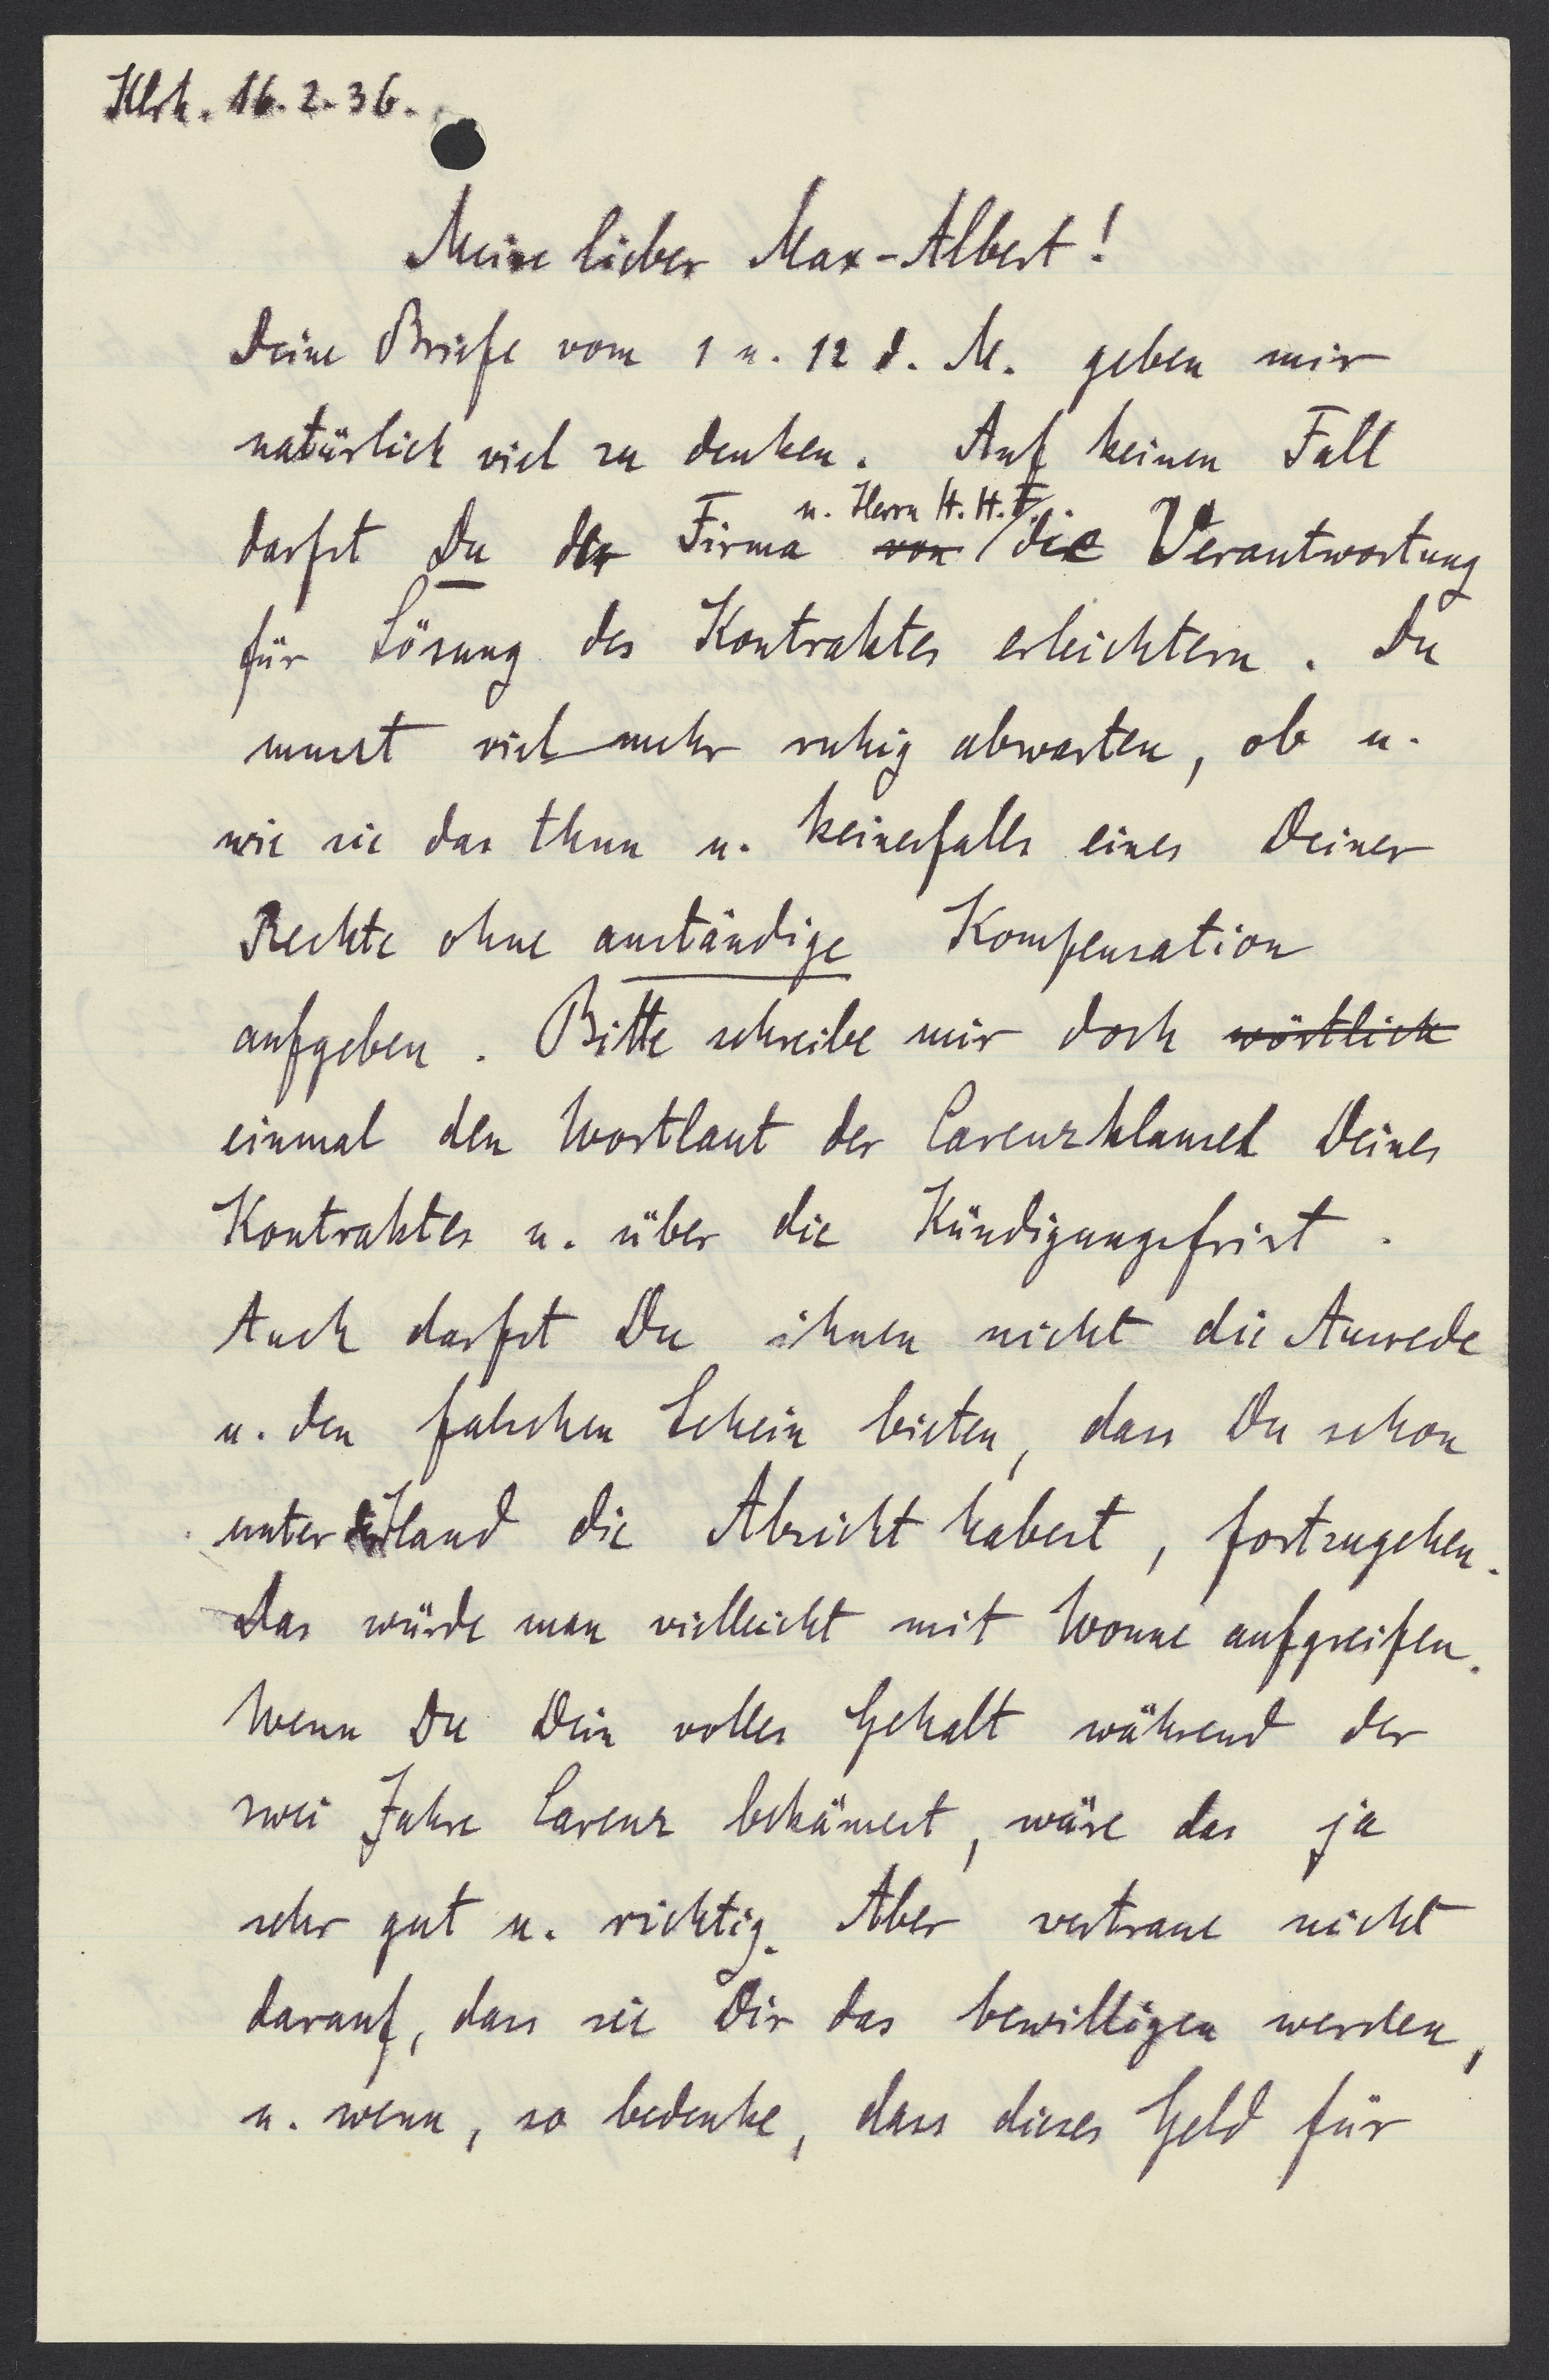 Klrh. 16.2.36.
Mein lieber Max-Albert!
Deine Briefe vom 1 u. 12 d. M. geben mir
natürlich viel zu denken. Auf keinen Fall
u. Herrn H. H. F.
darfst Du der Firma von die Verantwortung
für Lösung des Kontraktes erleichtern. Du
musst vielmehr ruhig abwarten, ob u.
wie sie das thun u. keinesfalls eines Deiner
Rechte ohne anständige Kompensation
aufgeben. Bitte schreibe mir doch wörtlich
einmal den Wortlaut der Carenzklausel Deines
Kontraktes u. über die Kündigungsfrist.
Auch darfst Du ihnen nicht die Ausrede
u. den falschen Schein bieten, dass Du schon
unter der Hand die Absicht habest, fortzugehen.
Das würde man vielleicht mit Wonne aufgreifen.
Wenn Du Dein volles Gehalt während der
zwei Jahre Carenz bekämest, wäre das ja
sehr gut u. richtig. Aber vertraue nicht
darauf, dass sie Dir das bewilligen werden,
u. wenn, so bedenke, dass dieses Geld für